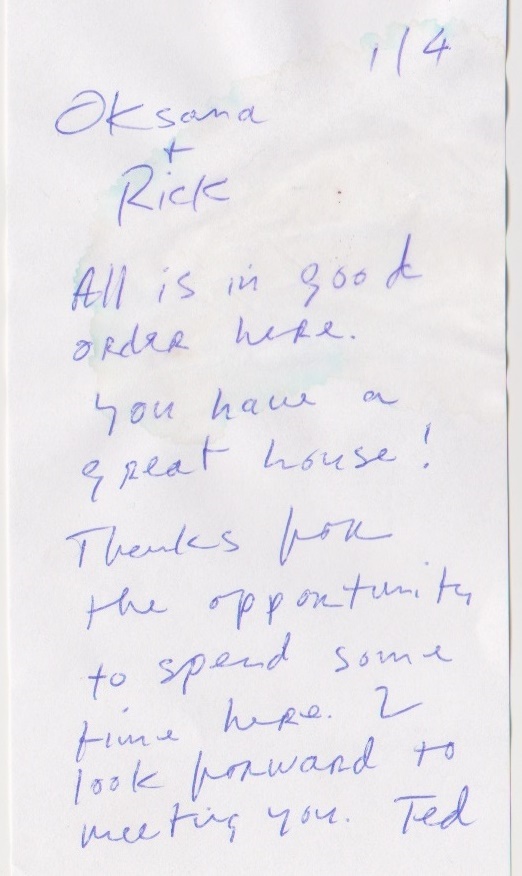 1/4
Oksana
+
Rick
All is in good
order here.
You have a
great house!
Thanks for
the opportunity
to spend some
time here. I
look forward to
meeting you. Ted